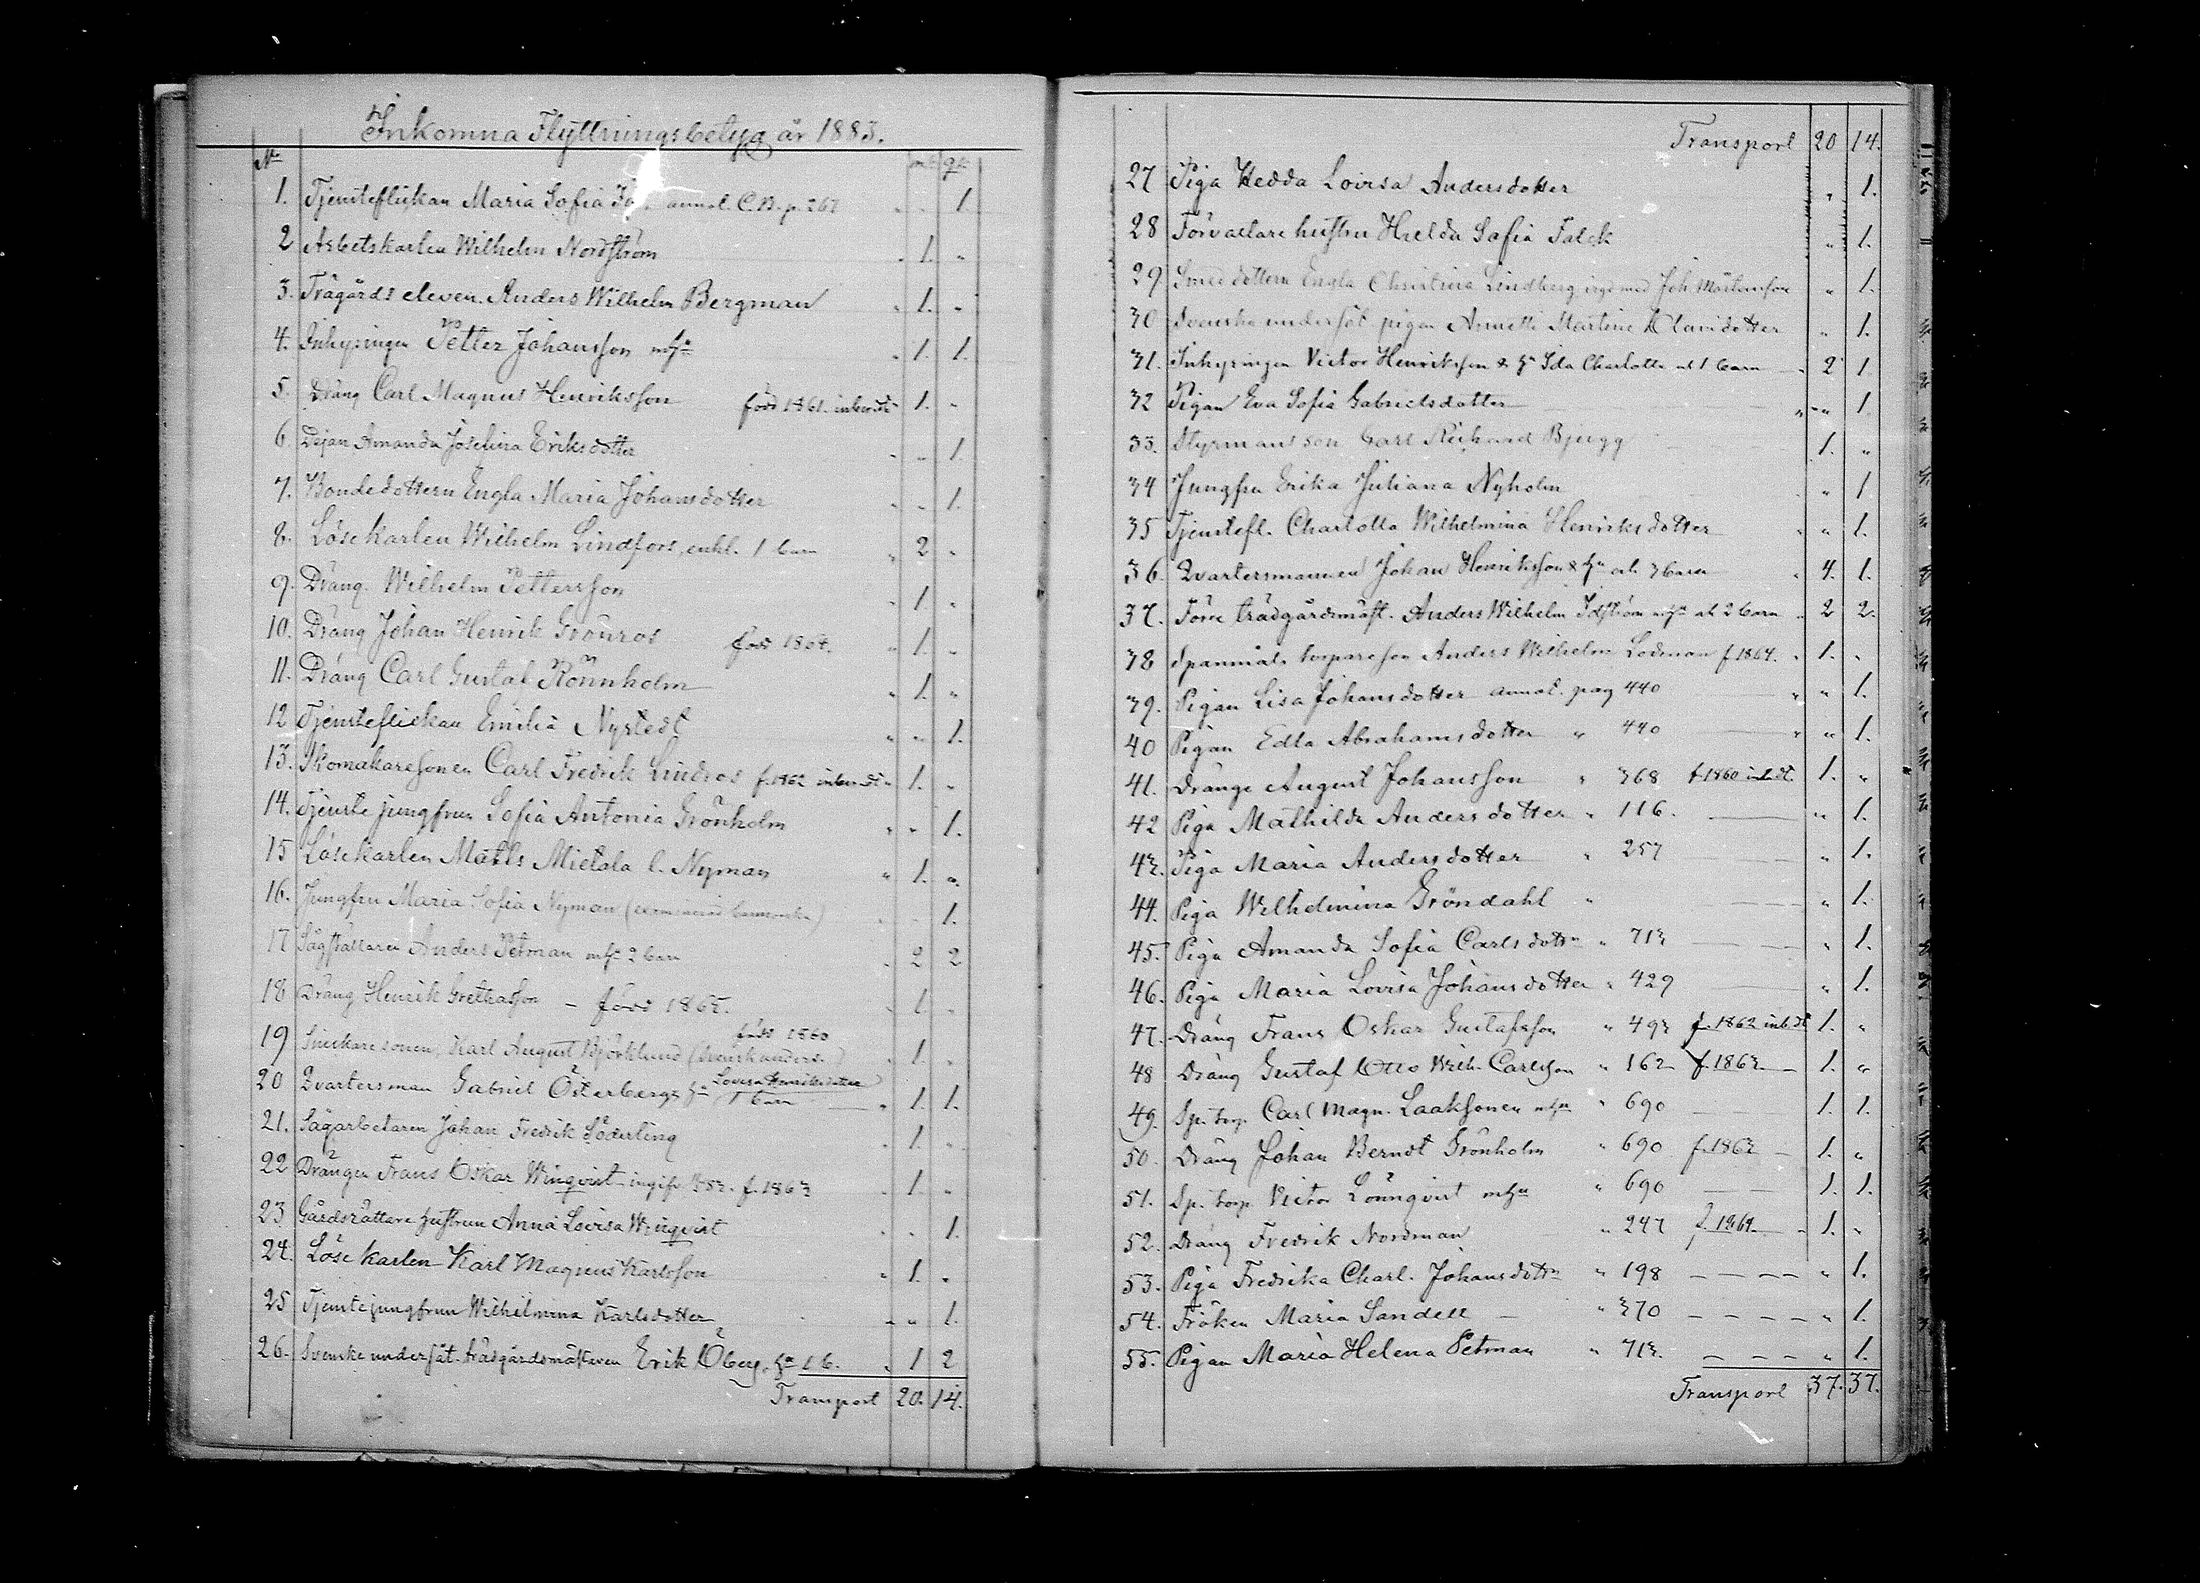 Inkomna Flyttningsbetyg år 1883.
No mk. qk.
1. Tjensteflickan Maria Sofia annot. C.B. p. 267 " 1.
2 Arbetskarlen Wilhelm Nordström 1. "
3. Trägårds eleven Anders Wilhelm Bergman 1. "
4. Inhysingen Petter Johansson mhu 1. 1.
5. Dräng Carl Magnus Henriksson född 1861. 1. "
6. Dejan Amanda Josefina Eriksdotter " 1.
7. Bondedottern Engla Maria Johansdotter " 1.
8. Lösekarlen Wilhelm Lindfors, enkl. 1 barn 2 "
9. Dräng Wilhelm Pettersson 1. "
10. Dräng Johan Henrik Grönros född 1864. 1. "
11. Dräng Carl Gustaf Rönnholm 1. "
12 Tjensteflickan Emilia Nystedt " 1.
13. Skomakaresonen Carl Fredrik Lindros f. 1862 1. "
14. Tjenste jungfrun Sofia Antonia Grönholm " 1.
15 Lösekarlen Matts Mietala l. Nyman 1. "
16. Jungfru Maria Sofia Nyman " 1.
17 Sågställaren Anders Petman mhu 2 barn 2 2
18 Dräng Henrik Grethasson – född 1865. 1. "
född 1860
19 Karl August Björklund 1. "
Lovisa Henriksdotter
20 Qvartersman Gabriel Österberg & hu 1 barn 1. 1.
21. Sågarbetaren Johan Fredrik Söderling 1. "
22 Drängen Frans Oskar Winqvist f. 1863 1. "
23 Gårdsrättare hustrun Anna Lovisa Winqvist " 1.
24. Lösekarlen Karl Magnus Karlsson 1. "
25 Tjenstejungfrun Wilhelmina Karlsdotter " 1.
26. Svenske undersåt. trädgårdsmästaren Erik Öberg, hu 1 b. 1 2
Transport 20. 14.
Transport 20 14.
27 Piga Hedda Lovisa Andersdotter " 1.
28 Förvaltare hustru Hulda Sofia Falck " 1.
29. Smeddottern Engla Christina Lindberg " 1.
30 Svenska undersåt pigan Martina " 1.
31. Inhysingen Victor Henriksson & hu Ida Charlotta ah 1 barn 2 1
32 Pigan Eva Sofia Gabrielsdotter " 1
33. Styrmansson Carl Richard Bjugg 1. "
34 Jungfru Erika Juliana Nyholm " 1
35 Tjenstefl. Charlotta Wilhelmina Henriksdotter " 1.
36. Qvartersmannen Johan Henriksson & hu och 3 barn 4. 1.
37. Förre trädgårdsmäst. Anders Wilhelm Idström mhu ah 2 barn 2 2.
38 Spanmåls torpareson Anders Wilhelm Lodman f. 1864. 1. "
39. Pigan Lisa Johansdotter annot. pag 440 " 1.
40 Pigan Edla Abrahamsdotter " 440 " 1.
41. Dränge August Johansson " 368 f. 1860 1. "
42 Piga Mathilda Andersdotter " 116. " 1.
43. Piga Maria Andersdotter " 257 " 1.
44. Piga Wilhelmina Gröndahl " " 1.
45. Piga Amanda Sofia Carlsdottr " 713 " 1.
46. Piga Maria Lovisa Johansdotter " 429 " 1.
47. Dräng Frans Oskar Gustafsson " 493 f. 1862 1. "
48 Dräng Gustaf Otto Wilh. Carlsson " 162 f. 1863 1. "
49. Sp. torp Carl Magn. Laaksonen mhu " 690 1. 1.
50. Dräng Johan Berndt Grönholm " 690 f. 1863 1. "
51. Sp. torp Victor Lönnqvist mhu " 690 1. 1.
52. Dräng Fredrik Nordman " 247 f. 1861 1. "
53. Piga Fredrika Charl. Johansdottr " 198 " 1.
54. Fröken Maria Sandell " 370 " 1.
55. Pigan Maria Helena Petman " 713. " 1.
Transport 37. 37.